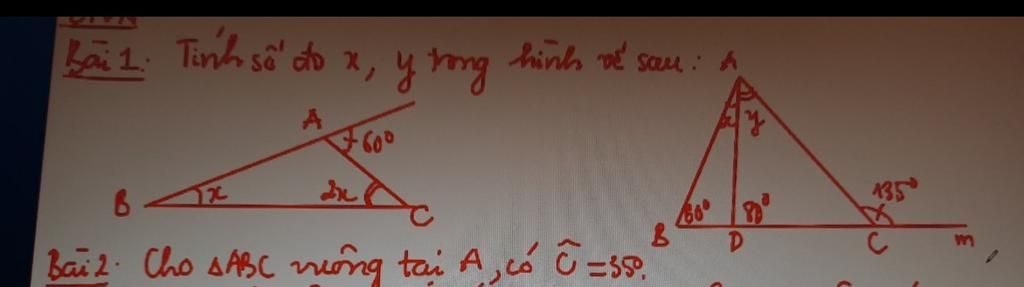 Bài 1. Tính số đo x, y trong hình vẽ sau:
A
60°
B
x
2x
C
A
x
y
60°
80°
135°
B
D
C
m
Bài 2. Cho ΔABC vuông tại A, có Ĉ = 35°.